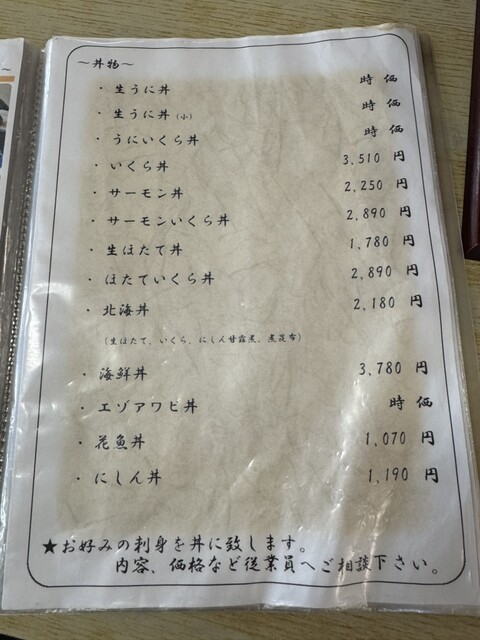 ～丼物～
・生うに丼 時価
・生うに丼(小) 時価
・うにいくら丼 時価
・いくら丼 3,510 円
・サーモン丼 2,250 円
・サーモンいくら丼 2,890 円
・生ほたて丼 1,780 円
・ほたていくら丼 2,890 円
・北海丼 2,180 円
(生ほたて、いくら、にしん甘露煮、煮昆布)
・海鮮丼 3,780 円
・エゾアワビ丼 時価
・花魚丼 1,070 円
・にしん丼 1,190 円
★お好みの刺身を丼に致します。
内容、価格など従業員へご相談下さい。